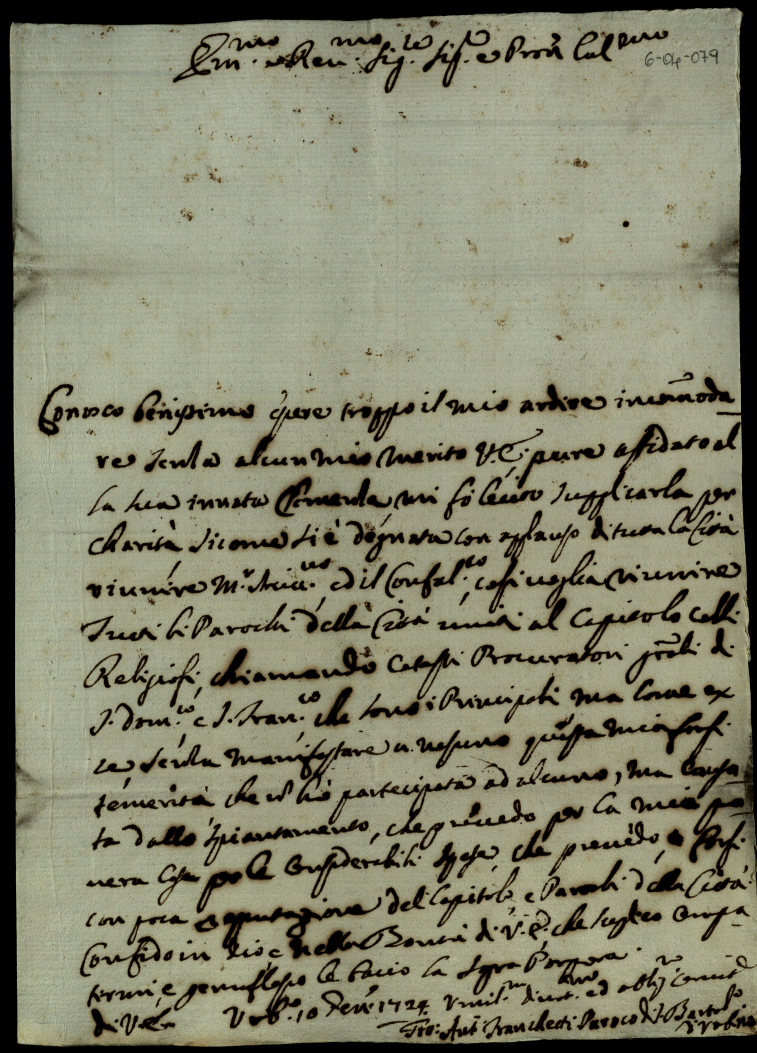 Em.mo e Rev.mo Sig.re Sig.re e Pron Col.mo
6-04-079
Conosco benissimo essere troppo il mio ardire incommoda
re senza alcun mio merito V.E. pure affidato al
la sua innata Clemenza mi fò lecito supplicarla per
charità sicome si è degnata con applauso di tutta la Città
riunire M.r Arciv.vo ed il Confal.ro, così voglia riunire
Tutti li Parochi della Città uniti al Capitolo colli
Religiosi, chiamando Procuratori gn̄ali di
S. Dom.co e S. Fran.co che sono i Principali ma come ex
se senza manifestare a nesuno questa mia
temerità che nō hò partecipata ad alcuno, ma
ta dallo spiantamento, che prevedo per la mia po
vera Casa p le considerabili spese, che prevedo, e
con poca reputazione del Capitolo, e Parochi della Città.
Confido in Dio, e nella Bontà di V.E. che supplico
termi, e genuflesso le bacio la Sagra Porpora.
di V.E. Urb.o 10 Feb.o 1724 Umil.mo divot.mo ed oblig.mo
Gio: Ant.o Franchetti Paroco di S. Bartolo
d'Urbino